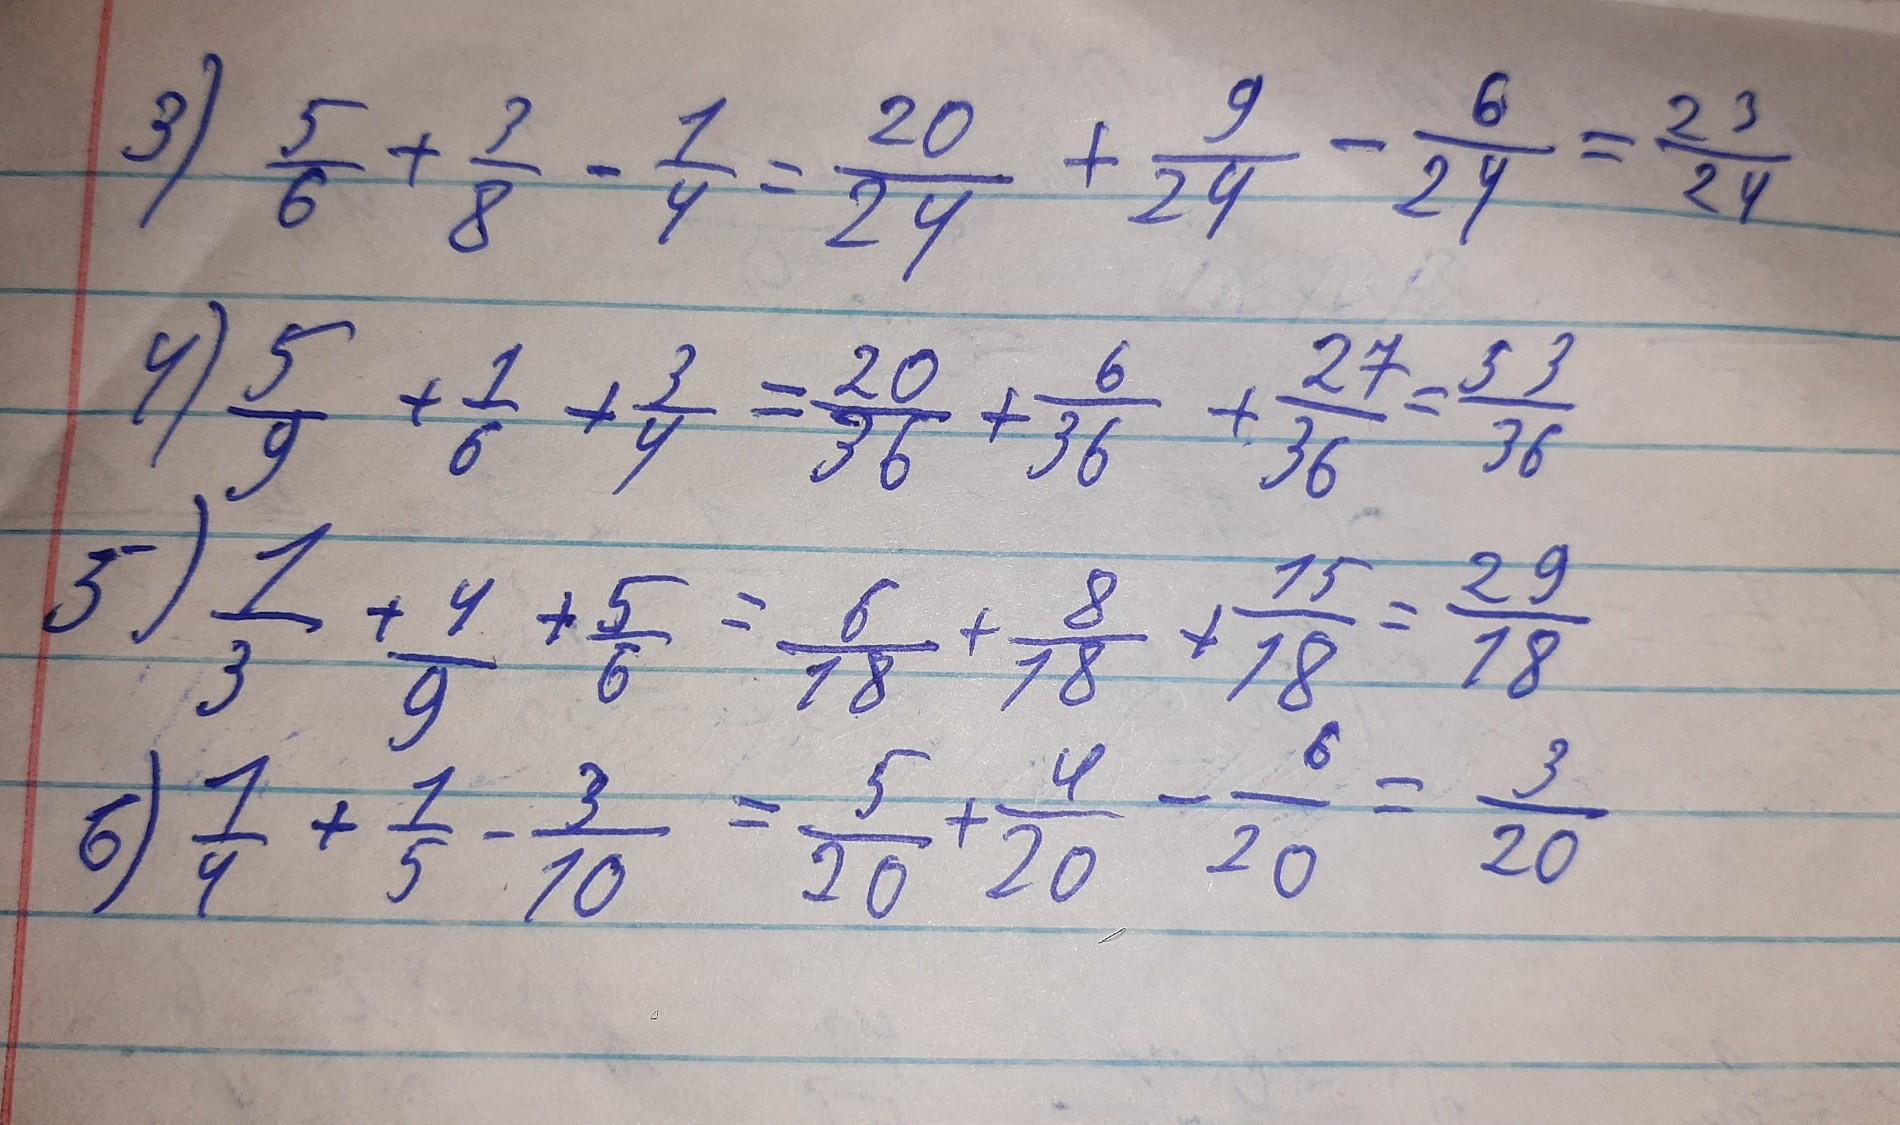 3) 5/6 + 3/8 - 1/4 = 20/24 + 9/24 - 6/24 = 23/24
4) 5/9 + 1/6 + 3/4 = 20/36 + 6/36 + 27/36 = 53/36
5) 1/3 + 4/9 + 5/6 = 6/18 + 8/18 + 15/18 = 29/18
6) 1/4 + 1/5 - 3/10 = 5/20 + 4/20 - 6/20 = 3/20